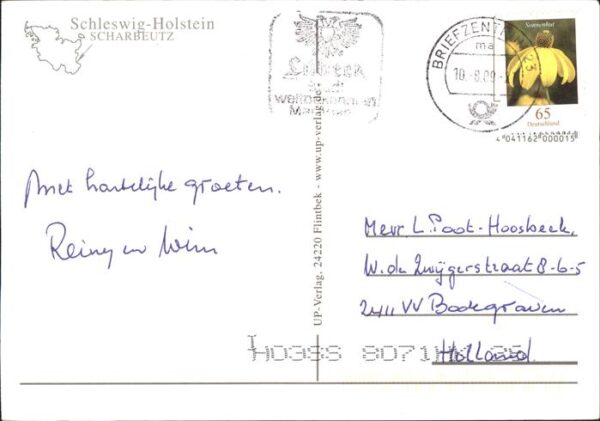 Schleswig-Holstein
SCHARBEUTZ
Lübeck
Stadt
BRIEFZENTRUM 23
ma
10.-8.09.-
Sonnenhut
65
Deutschland
4 041162 000015
Met hartelijke groeten.
Reiny en Wim
UP-Verlag, 24220 Flintbek - www.up-verlag.de
Mevr. L. Poot-Hoosbeek,
W. de Zwijgerstraat 8-6-5
2411 VV Bodegraven
Holland